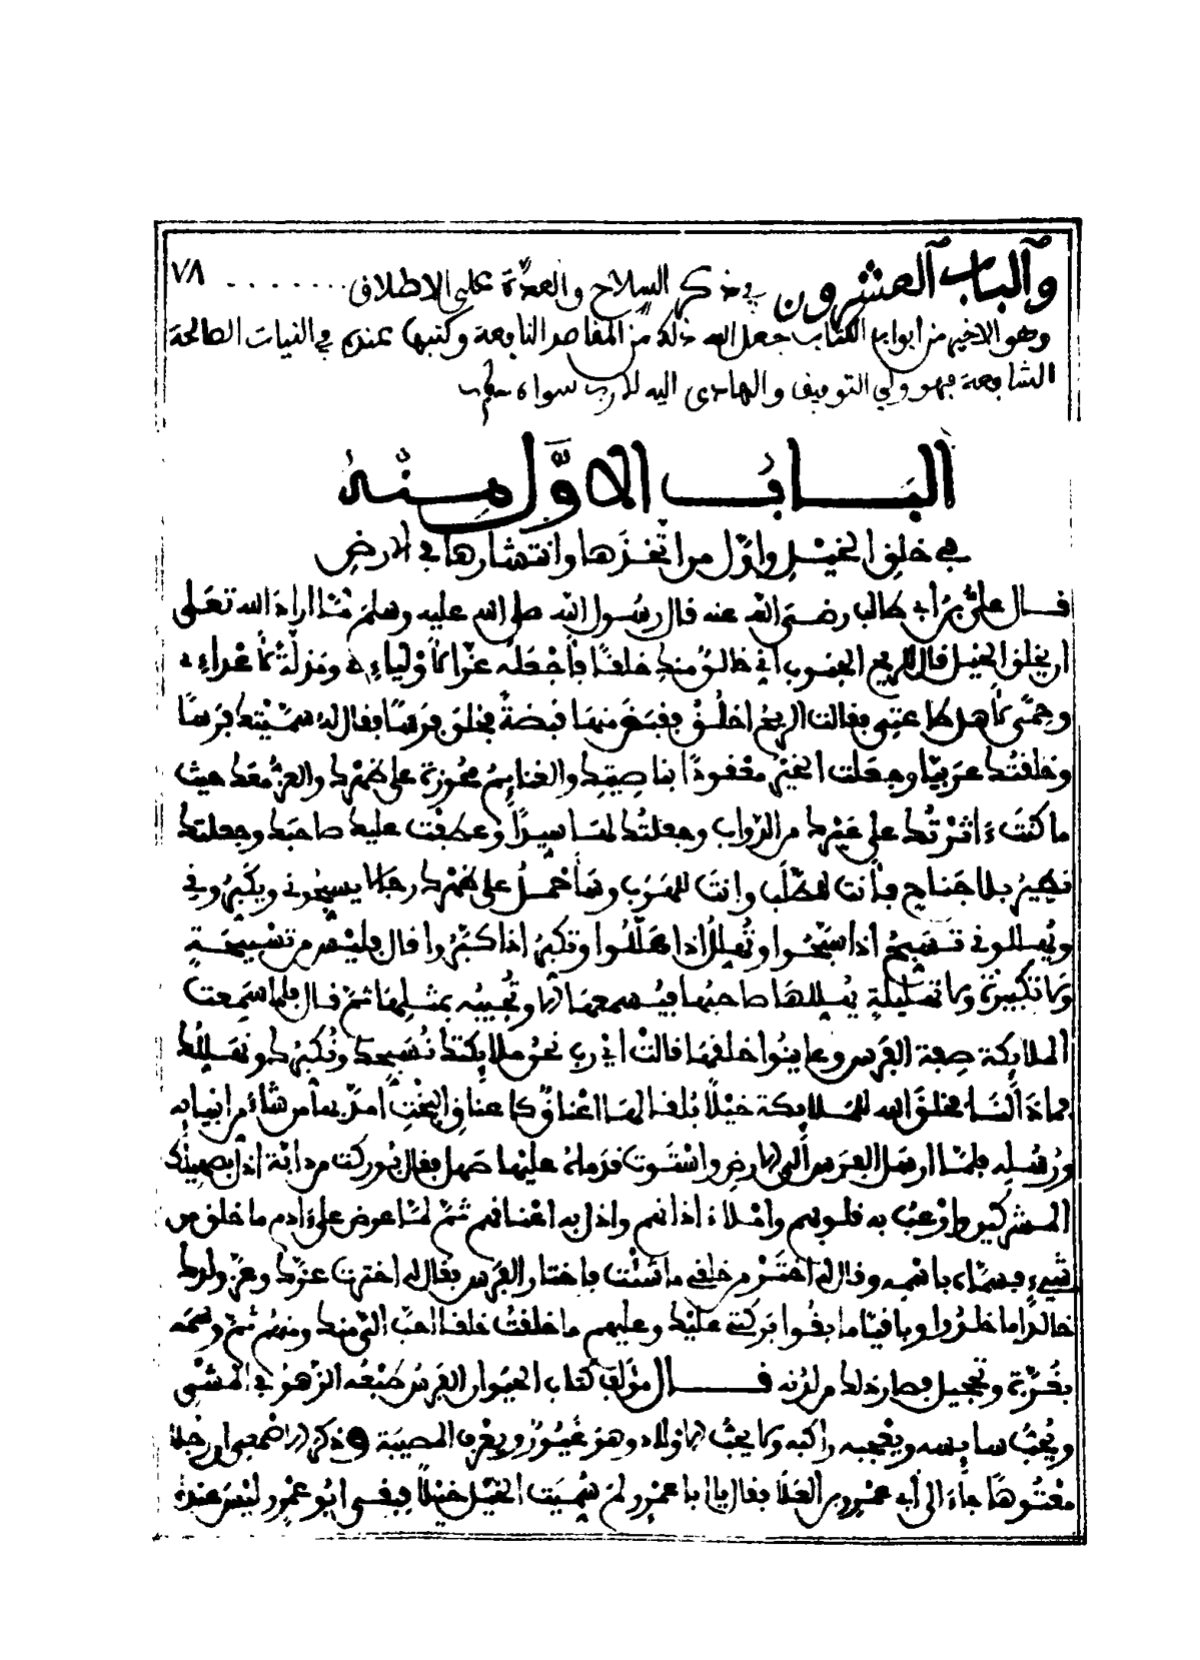 والباب العشرون في ذكر السلاح والعدّة على الاطلاق ........ ٧٨
وهو الاخير من أبواب الكتاب جعل الله ذلك من المقاصد النافعة وكتبها عنده في النيات الصالحة
الشافعة فهو ولي التوفيق والهادى اليه لا رب سواه
البَابُ الاوَّل مِنْهُ
في خلق الخيْلِ واوّل من اتّخذها وانتشارها في الارضِ
قال علىّ بن أبي طالب رضى الله عنه قال رسُول الله صلى الله عليه وسلم لمّا اراد الله تعَلى
ان يخلق الخيْل قال للريح الجنوب اني خالق منك خلقًا فأجْعله عزّا لأوْلياءِي ومذلّة لأعْداءِي
وحِمًى لأهل طاعتى فقالت الريح اخلُقْ فقبض منها قبْضةً فخلق فرسًا فقال له سمّيْتك فرسًا
وخلقتُك عربيّا وجعلت الخيْر معْقودًا بناصِيتك والغنايِمُ محُوزة على ظهْرك والعزّ معَك حيث
ما كنتَ ءاثرْتُك على غيْرك من الدّواب وجعلتُك لها سيدًا وعطفْت عليك صاحبَك وجعلتك
تطيرُ بلا جناح فأنت للطّلب وانتَ للهرَب وسأحْملُ على ظهْرك رجالا يسبحُونى ويكبّرُونى
ويُهللونى تسبحُ اذا سبّحُوا وتُهللُ اذا هلّلُوا وتكبّرُ اذا كبّرُوا قال فليْس من تسْبيحَةٍ
ولا تكْبيرَة ولا تهْليلةٍ يُهللها صاحبُها فيسْمعهَا الا وتُجيبُه بمثْلِها ثمّ قال فلما سَمِعت
الملايِكة صِفة الفَرس وعاينُوا خلقهَا قالتْ اىْ ربِ نحْنُ ملايِكتك نُسَبّحك ونُكبّرُك ونهَلّلُك
فماذا لنا فخلقَ الله للملايِكة خيْلًا بُلقا لها اعْناقٌ كاعناقِ البخْتِ امدّ بها من شاءَ من انبيايِه
ورُسُلِه فلمّا ارسَل الفَرس الى الارضِ واسْتَوت قدماهُ عليْها صَهل فقال بُوركت من دابّة اذل بصهِيلك
المشركين وارْعبُ به قلوبهم واملأ ءاذانهم واذل به اعْناقهم ثمّ لمّا عرض على ءادم ما خلق من
شىءٍ فسمّاه باسْمِه وقال له اخْتَرْ من خلقي ما شئْت فاختار الفَرس فقال له اخترت عزّك وعزّ ولدك
خالدًا ما خلدُوا وباقيًا ما بقُوا بَركتى عليْك وعليهم ما خلقتُ خلقا احبّ الىّ منك ومنهُم ثمّ وسمَه
بغُرّة وتحْجيل فصار ذلك من لدُنه قال مؤلف كتاب الحيوان الفَرسُ طبْعُه الزّهوُ في المشْىِ
ويُحبّ سايسه ويعْجبه راكبه ولا يحبُّ الاوْلاد وهوَ غَيُورٌ ويعْرف المصِيبَة وذكر الاصْمعى ان رجُلا
معْتُوهًا جاء الى أبى عمْرو بن العَلا فقال يا أبا عمْرو لمَ سُمِّيَت الخيْل خيْلًا فبقى ابُو عمْرو ليْسَ عندهُ